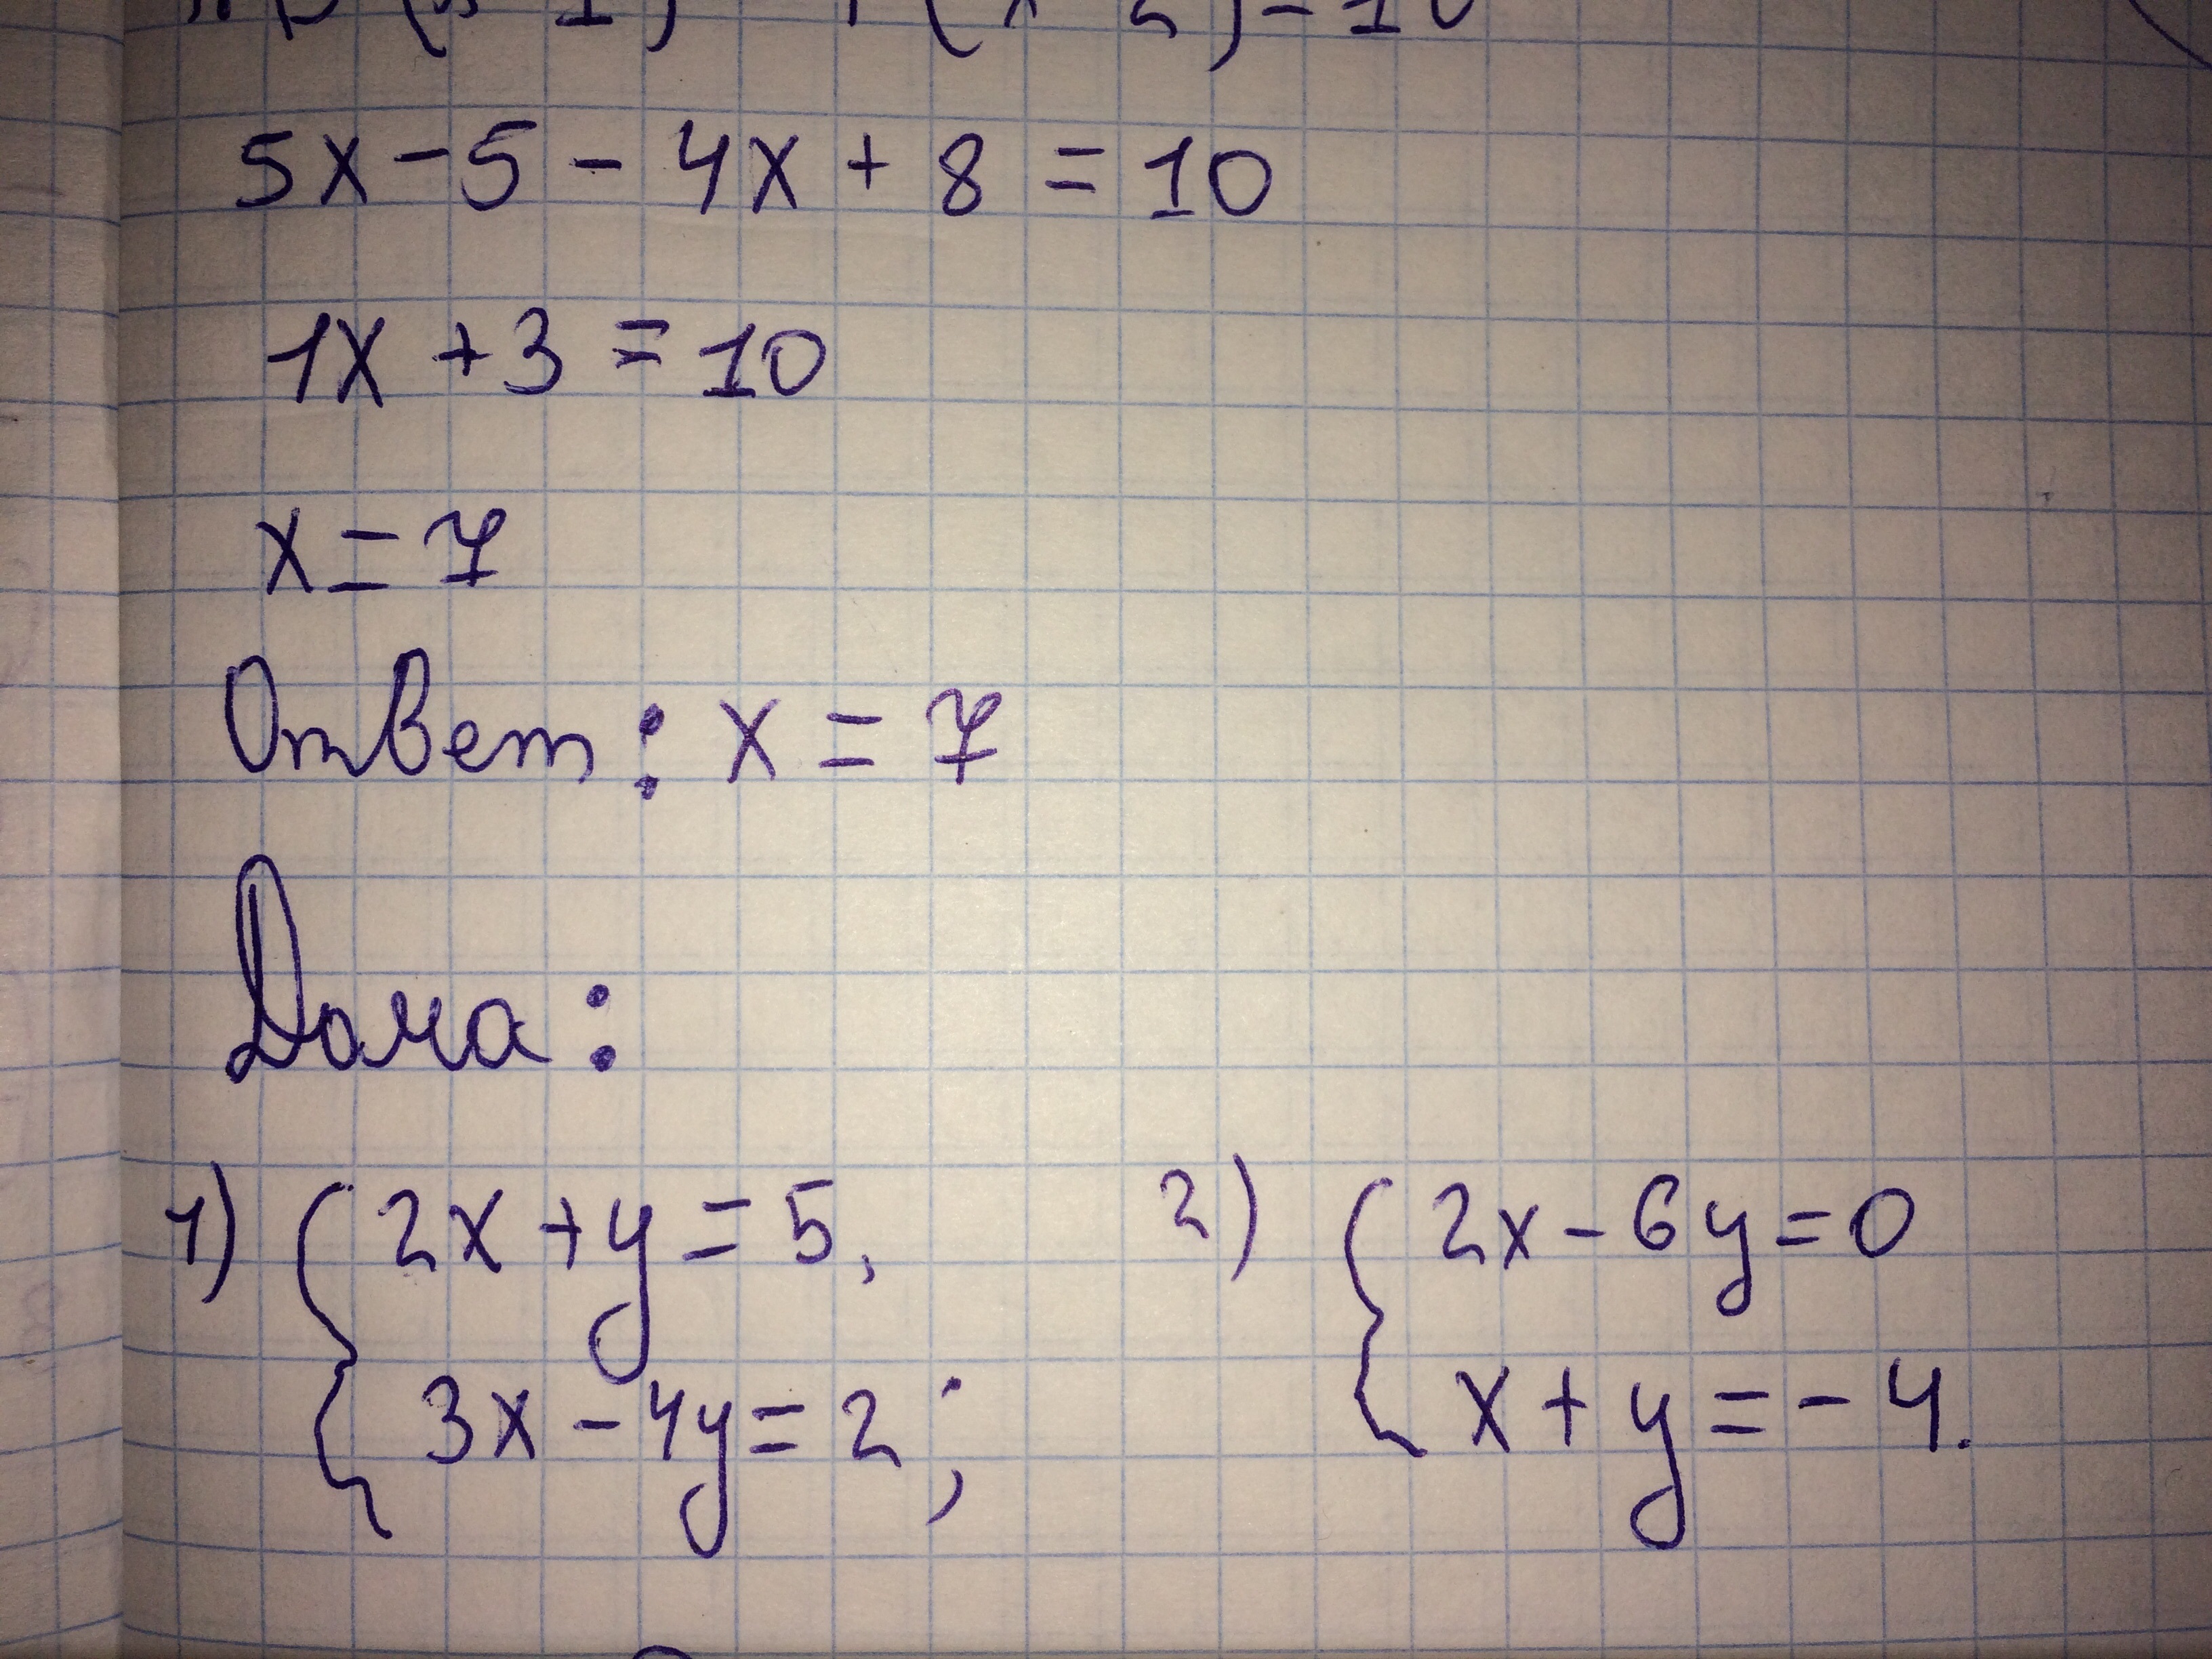 5x - 5 - 4x + 8 = 10
1x + 3 = 10
x = 7
Ответ: x = 7
Дома:
1) { 2x + y = 5, 2) { 2x - 6y = 0
3x - 4y = 2; x + y = -4.